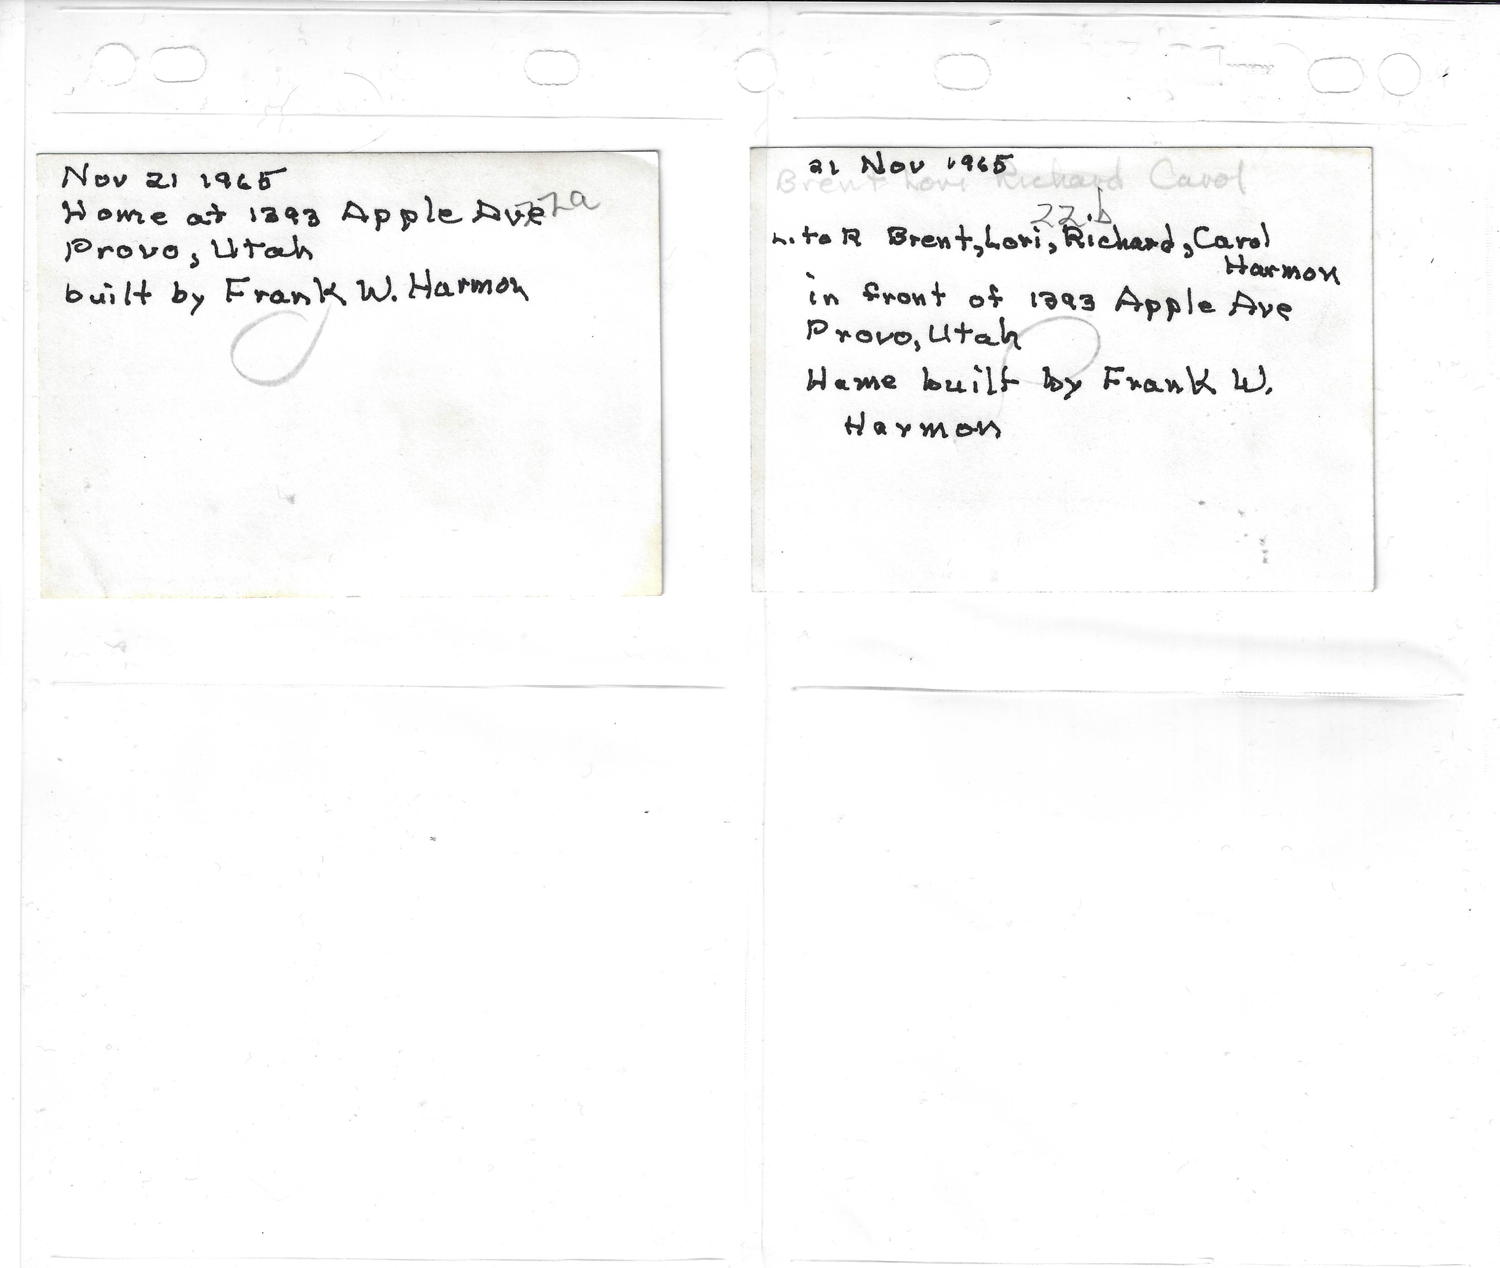 Nov 21 1965
Home at 1393 Apple Ave
22a
Provo, Utah
built by Frank W. Harmon
21 Nov 1965
Brent Lori Richard Carol
22.b
L. to R Brent, Lori, Richard, Carol
Harmon
in front of 1393 Apple Ave
Provo, Utah
Home built by Frank W.
Harmon